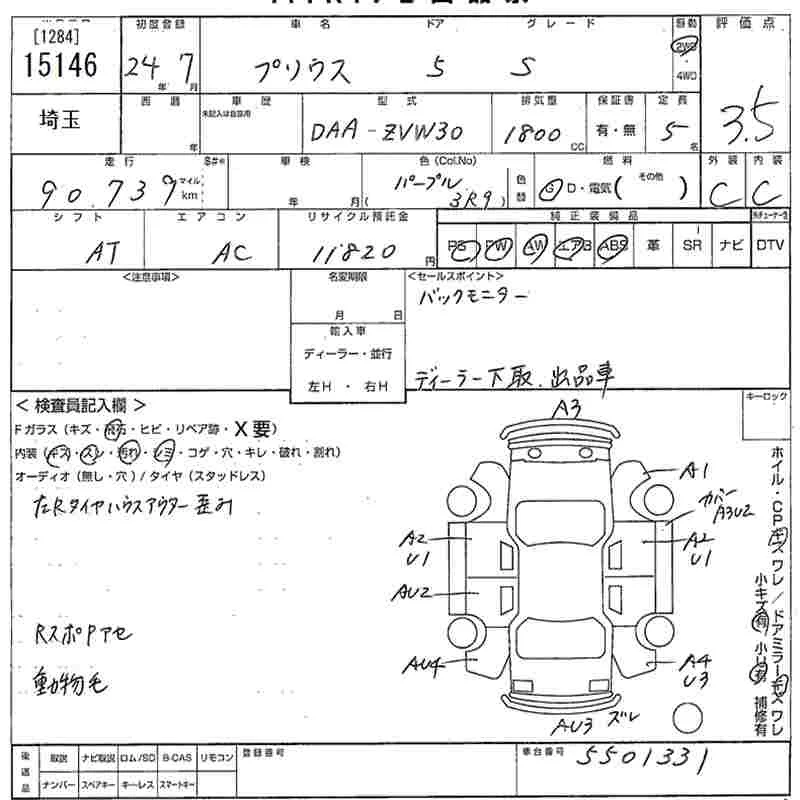 [1284]
15146
初度登録
24年 7月
車名
プリウス
ドア
5
グレード
S
駆動
2WD
・
4WD
評価点
3.5
埼玉
西暦
年
車歴
未記入は自家用
型式
DAA-ZVW30
排気量
1800 CC
保証書
有・無
定員
5名
走行
90,739
マイル
km
S#*
車検
年 月
色(Col,No)
パープル
( 3R9 )
色替
燃料
G D・電気( その他 )
外装
C
内装
C
シフト
AT
エアコン
AC
リサイクル預託金
11820円
純正装備品
PS PW AW エアB ABS 革 SR ナビ
DTV
<注意事項>
名変期限
月 日
輸入車
ディーラー・並行
左H ・ 右H
<セールスポイント>
バックモニター
ディーラー下取.出品車
キーロック
< 検査員記入欄 >
Fガラス (キズ・飛石・ヒビ・リペア跡・X要)
内装 (キズ・スレ・汚れ・シミ・コゲ・穴・キレ・破れ・割れ)
オーディオ (無し・穴) / タイヤ (スタッドレス)
左Rタイヤハウスアウター歪み
Rスポアセ
動物毛
A3
A1
カバー
A3U2
A2
U1
A2
U1
AU2
AU4
A4
U3
AU3 ズレ
ホイル・CPキズ ワレ / ドアミラーキズ ワレ
小キズ有 小凹有 補修有
後送品
取説 ナビ取説 ロム/SD B-CAS リモコン
ナンバー スペアキー キーレス スマートキー
登録番号
車台番号
5501331